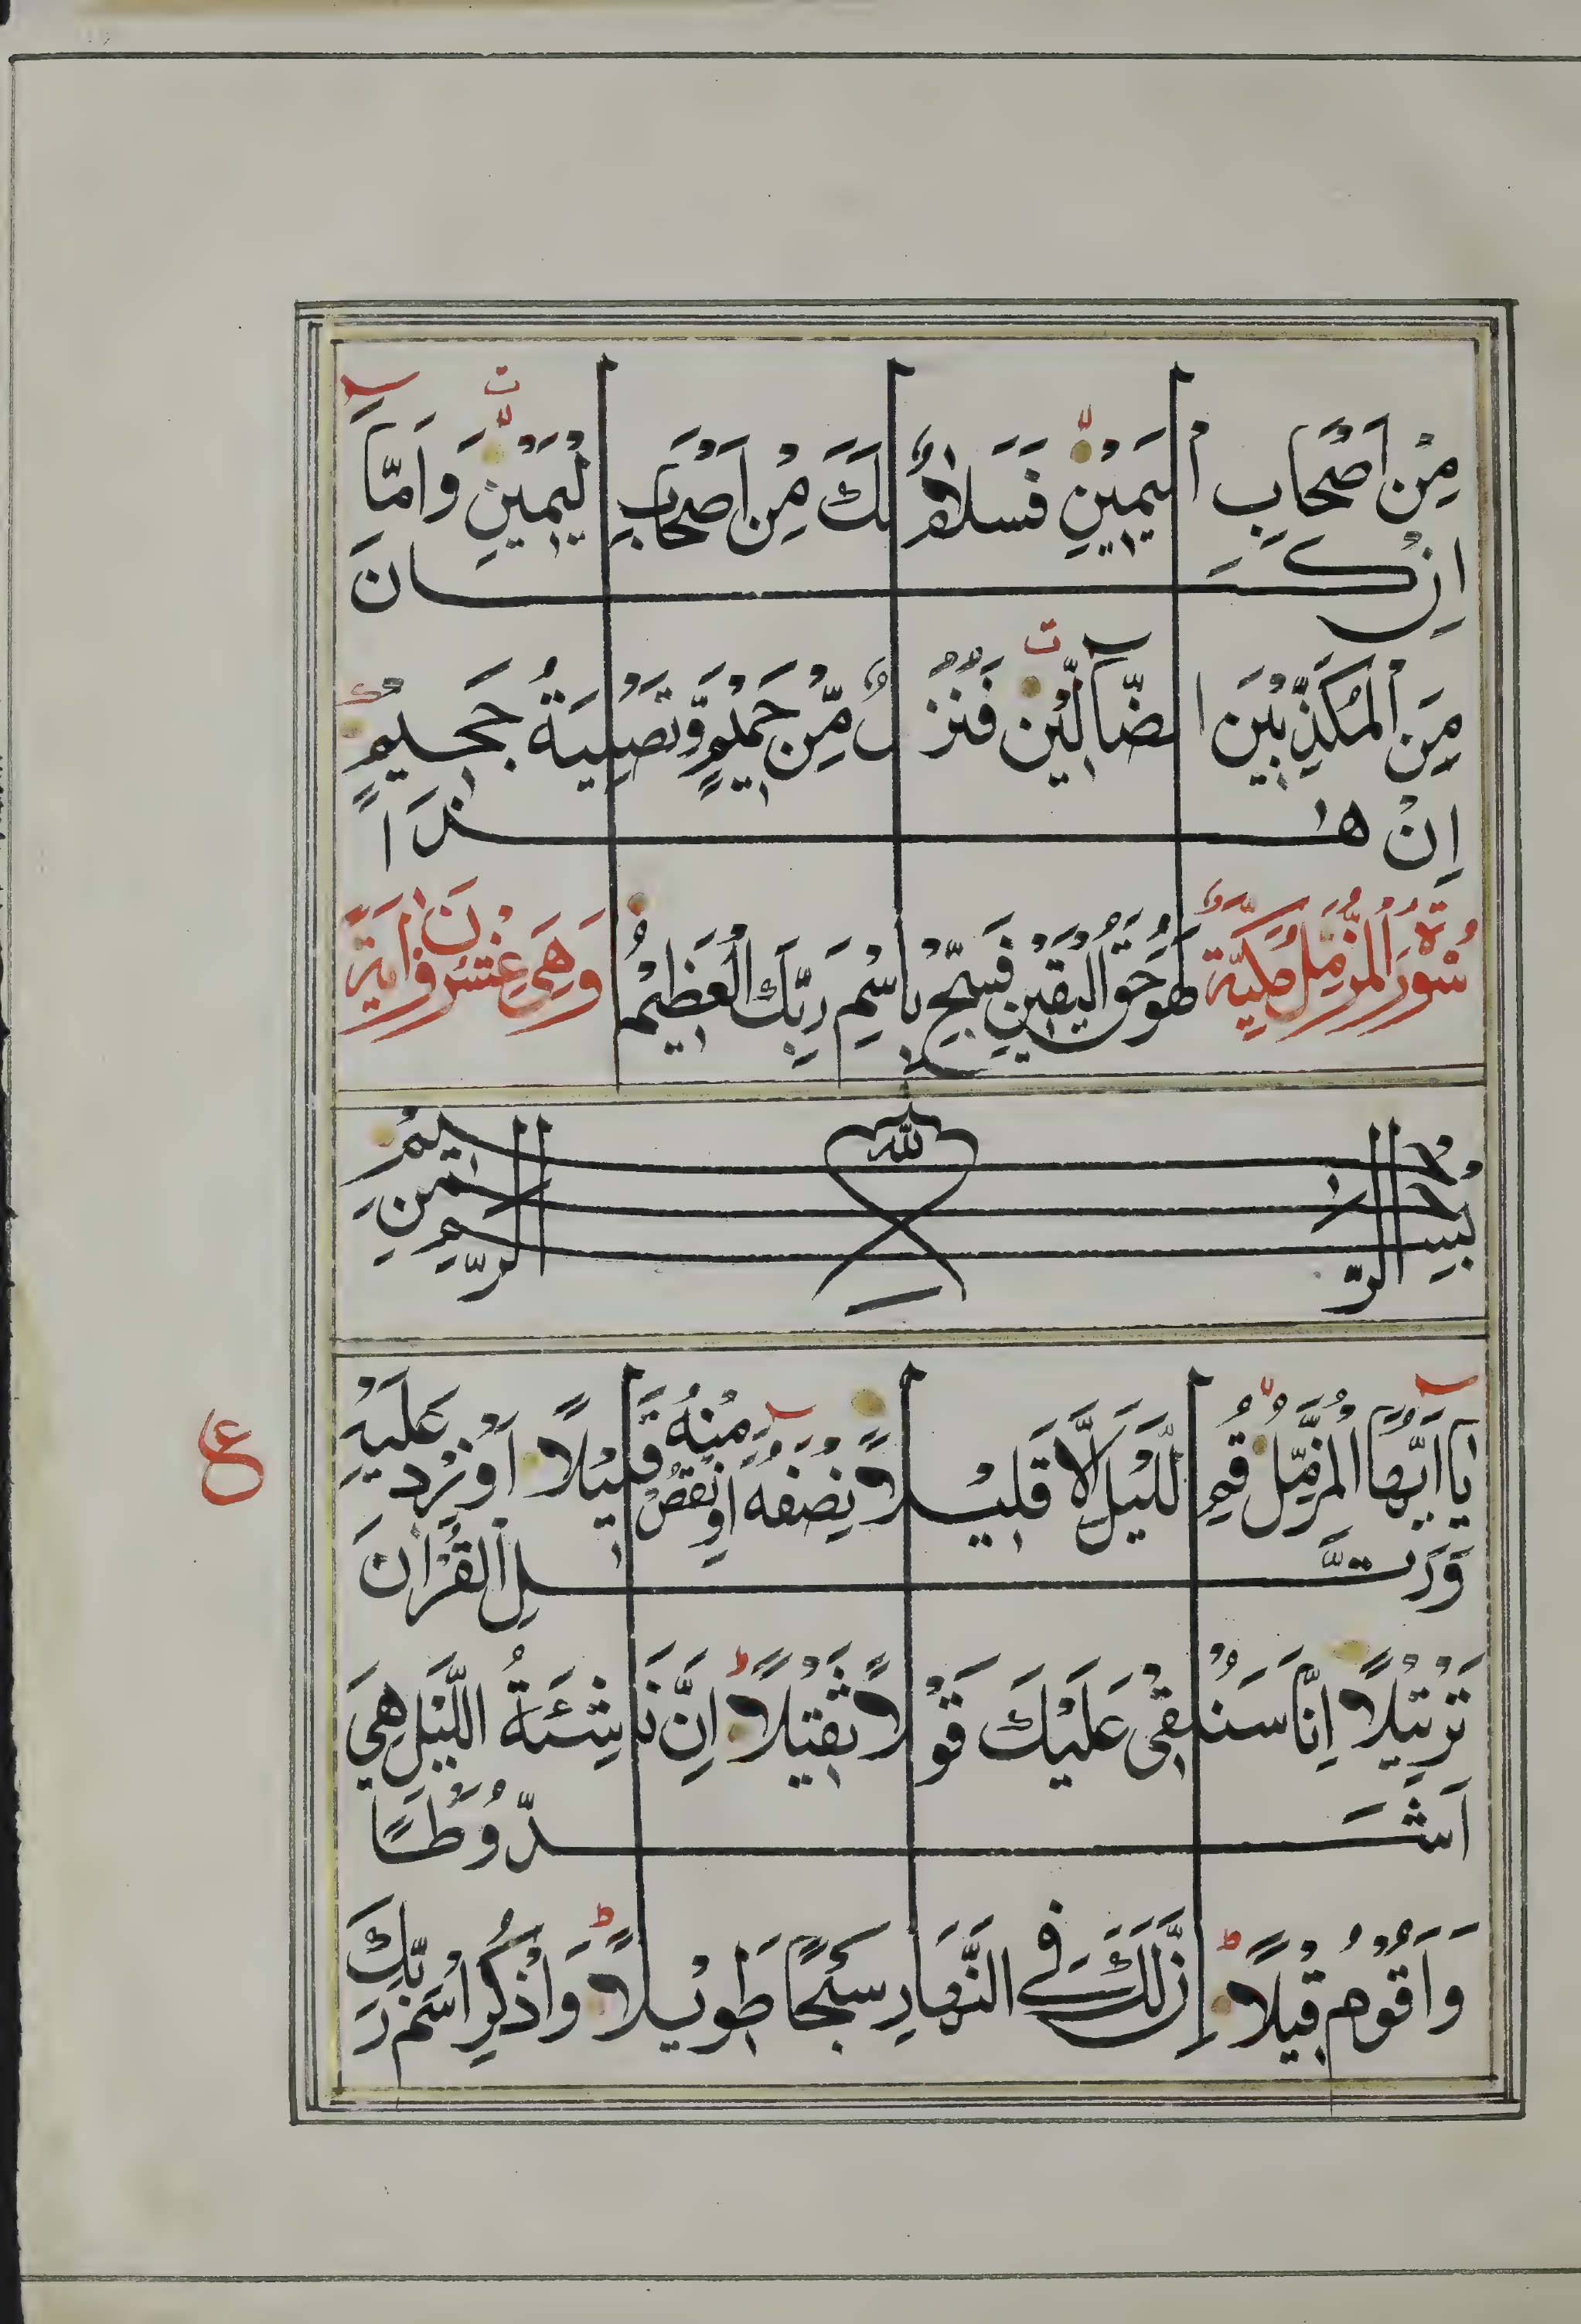 مِنْ اَصْحَابِ الْيَمِيْنِ فَسَلَامٌ لَّكَ مِنْ اَصْحَابِ الْيَمِيْنِ وَاَمَّآ
اِنْ كَانَ
مِنَ الْمُكَذِّبِيْنَ الضَّآلِّيْنَ فَنُزُلٌ مِّنْ حَمِيْمٍ وَّتَصْلِيَةُ جَحِيْمٍ
اِنَّ هٰذَا
سُوْرَةُ الْمُزَّمِّلِ مَكِّيَّةٌ
لَهُوَ حَقُّ الْيَقِيْنِ فَسَبِّحْ بِاسْمِ رَبِّكَ الْعَظِيْمِ
وَهِيَ عِشْرُوْنَ اٰيَةً
بِسْمِ اللّٰهِ الرَّحْمٰنِ الرَّحِيْمِ
يَآ اَيُّهَا الْمُزَّمِّلُ قُمِ الَّيْلَ اِلَّا قَلِيْلًا نِصْفَهٗٓ اَوِ انْقُصْ مِنْهُ قَلِيْلًا اَوْ زِدْ عَلَيْهِ
وَرَتِّلِ الْقُرْاٰنَ
تَرْتِيْلًا اِنَّا سَنُلْقِيْ عَلَيْكَ قَوْلًا ثَقِيْلًا ط اِنَّ نَاشِئَةَ اللَّيْلِ هِيَ
اَشَدُّ وَطْئًا
وَاَقْوَمُ قِيْلًا ط اِنَّ لَكَ فِي النَّهَارِ سَبْحًا طَوِيْلًا ط وَاذْكُرِ اسْمَ رَبِّكَ
ع